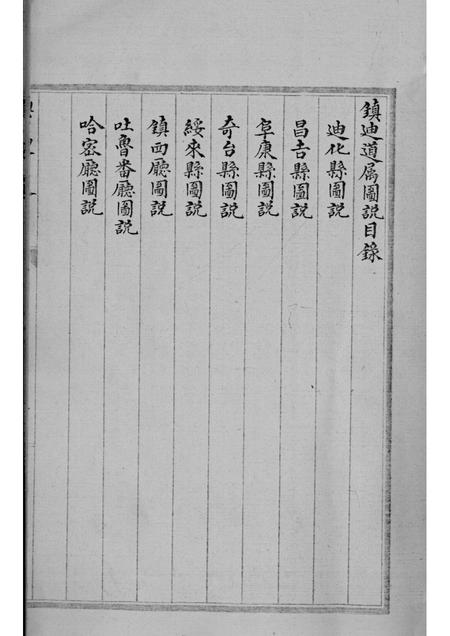 鎮迪道属圖說目錄
迪化縣圖說
昌吉縣圖說
阜康縣圖說
奇台縣圖說
綏來縣圖說
鎮西廳圖說
吐魯番廳圖說
哈密廳圖說